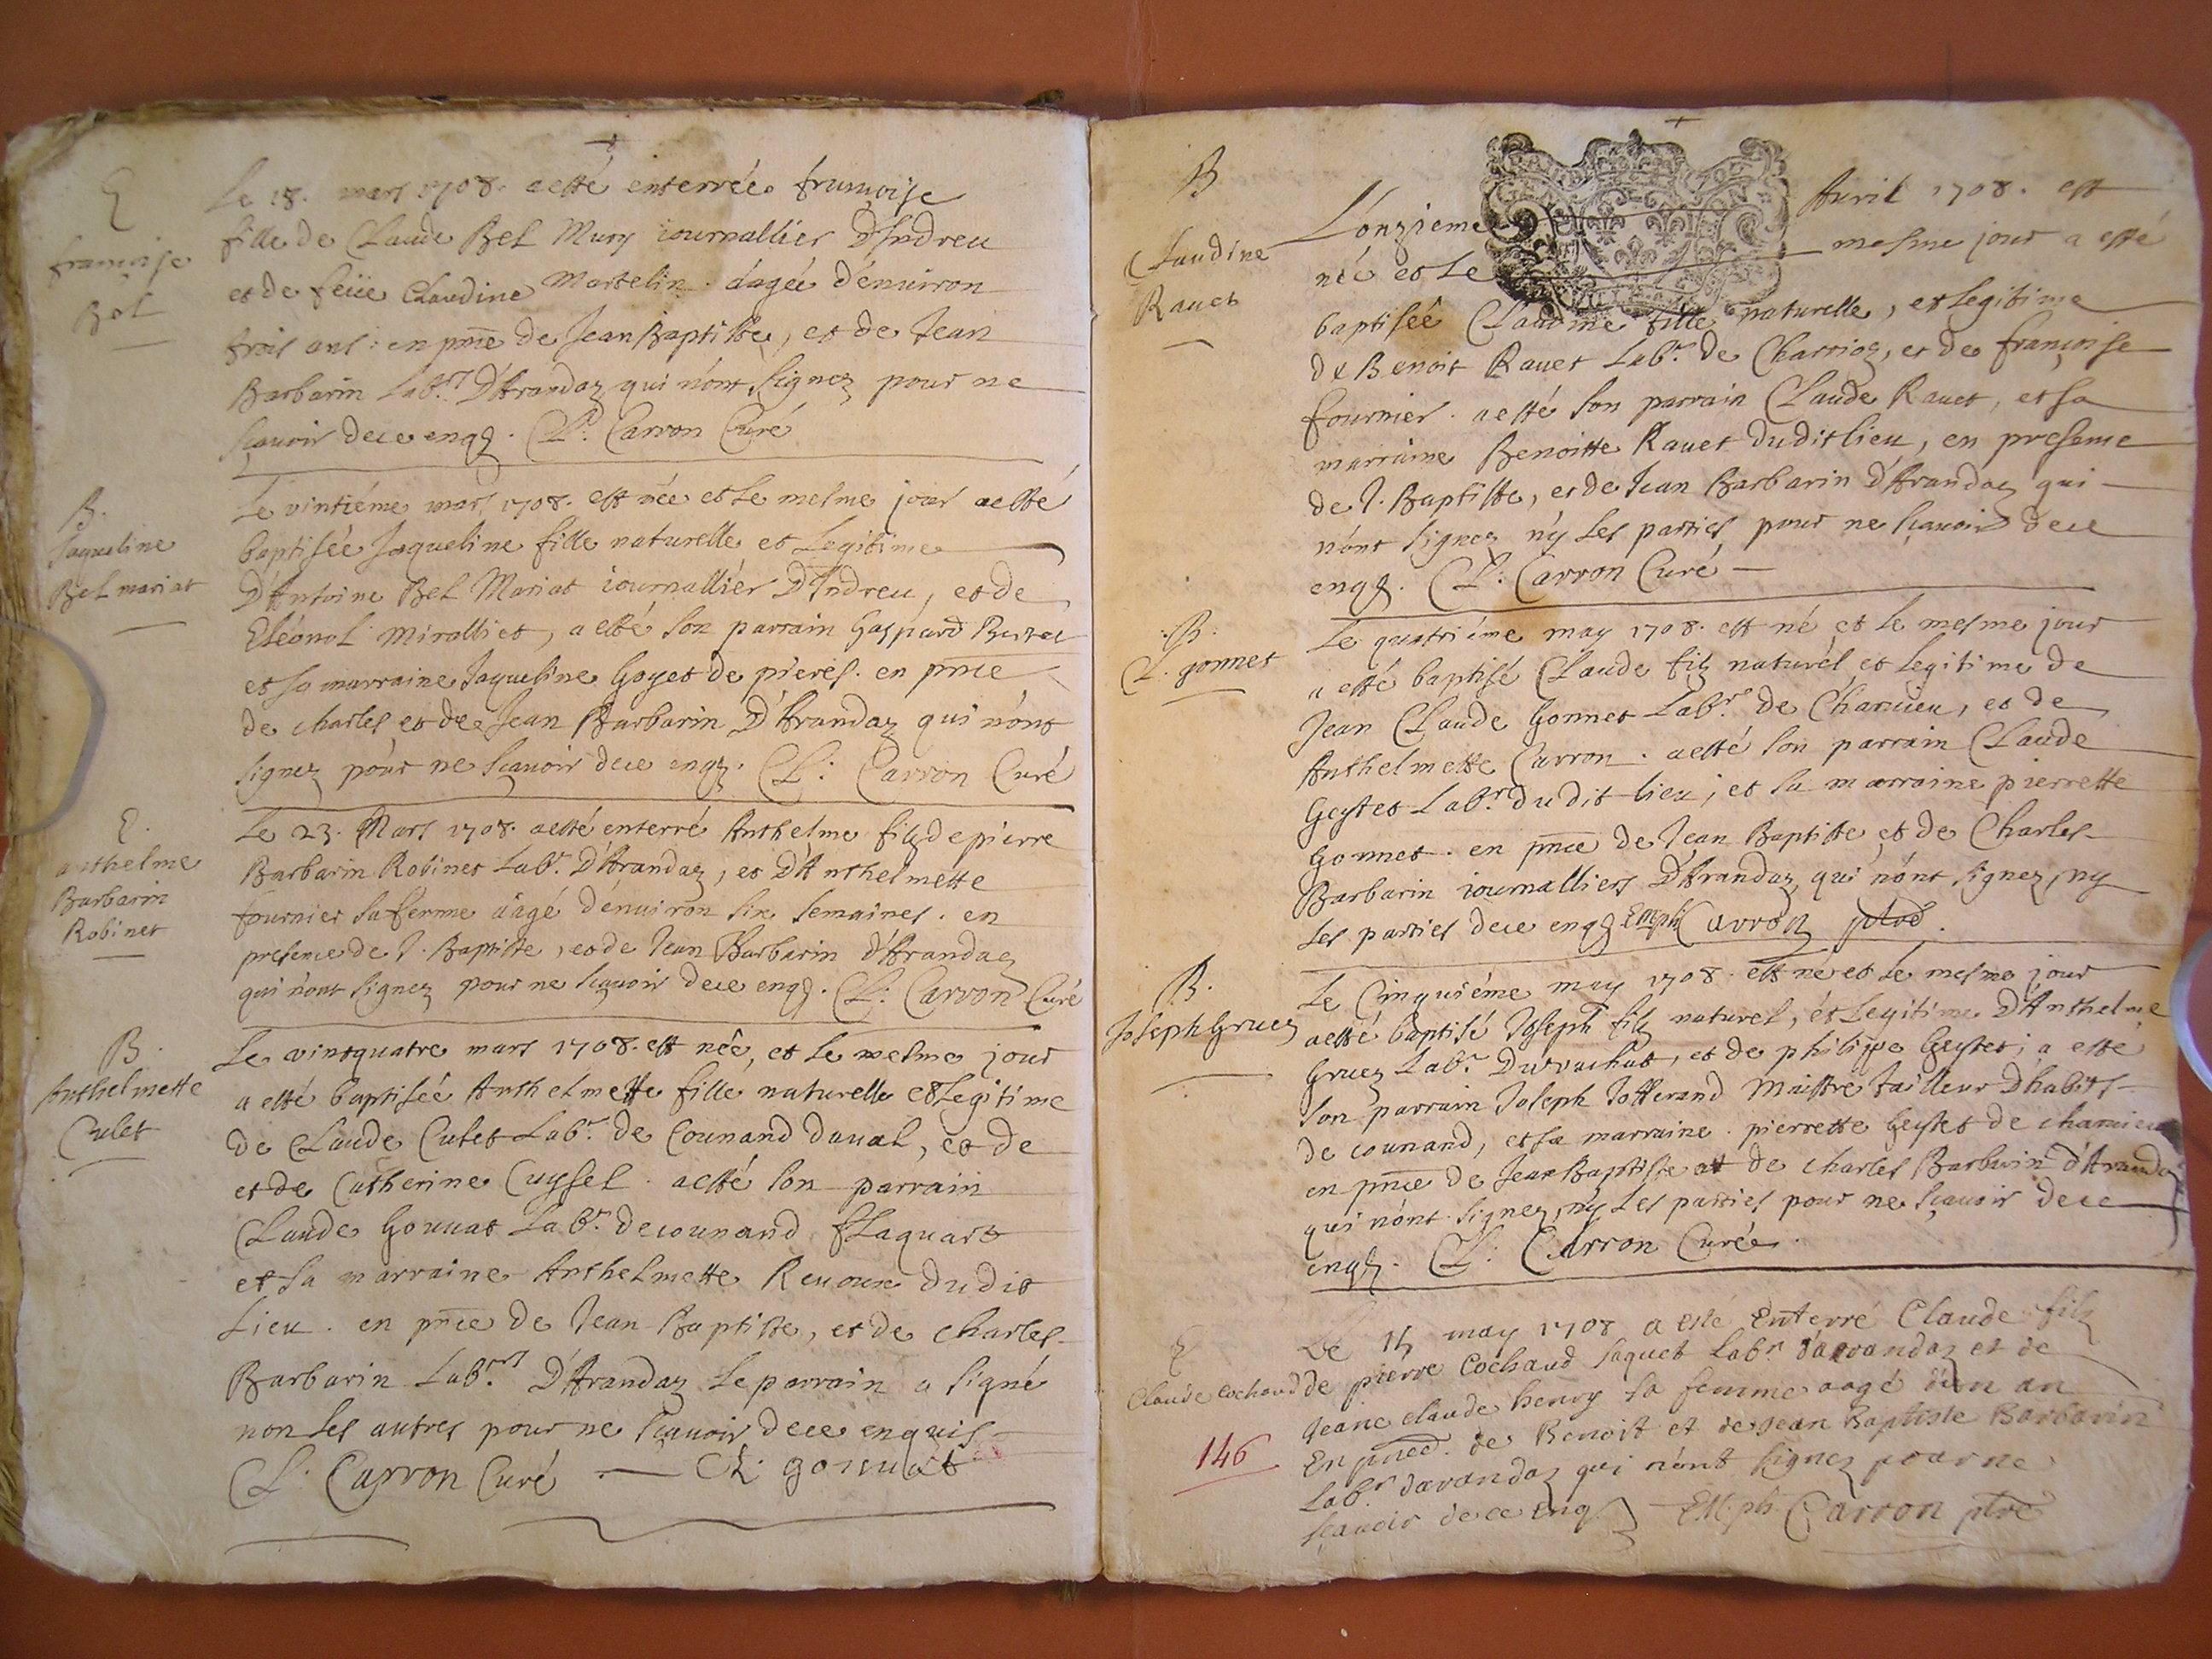 E
françoise
Bel
Le 18. mars 1708. a esté enterrée françoise
fille de Claude Bel Mury iournallier D'Indreu
et de feüe Claudine Martelin. d'agée d'enuiron
trois ans: en pnce de Jean Baptiste, et de Jean
Barbarin Labrs D'Arandaz qui n'ont signez pour ne
sçauoir de ce enqs. Cl: Carron Curé
B.
Jaqueline
Bel mariat
Le vintiéme mars 1708. est née et le mesme jour a esté
baptisée Jaqueline fille naturelle et Legitime
D'Antoine Bel Mariat iournallier D'Indreu, et de
Eléonol Miralliet, a esté son parrain Gaspard
et sa marraine Jaqueline Goyet de pierés. en pnce
de charles et de Jean Barbarin D'Arandaz qui n'ont
signez pour ne sçauoir de ce enqs. Cl: Carron Curé
E.
anthelme
Barbarin
Robinet
Le 23. Mars 1708. a esté enterré Anthelme filz de pierre
Barbarin Robinet Labr. D'Arandaz, et D'Anthelmette
fournier sa femme aagé d'enuiron six semaines. en
presence de J. Baptiste, et de Jean Barbarin d'Arandaz
qui n'ont signez pour ne sçauoir de ce enqs. Cl: Carron Curé
B.
Anthelmette
Culet
Le vintquatre mars 1708. est née, et le mesme jour
a esté baptisée Anthelmette fille naturelle et Legitime
de Claude Culet Labr. de Counand daual, et de
et de Catherine Cuyssel. a esté son parrain
Claude Gouuat Labr. de counand
et sa marraine Anthelmette Reuoux dudit
Lieu. en pnce de Jean Baptiste, et de charles
Barbarin Labrs D'Arandaz Le parrain a signé
non Les autres pour ne sçauoir de ce enquis
Cl. Carron Curé — Cl: gouuat
B
Claudine
Rauet
L'onzieme Auril 1708. est
née et Le mesme jour a esté
baptisée Claudine fille naturelle, et Legitime
de Benoit Rauet Labr. de Charrioz, et de françoise
fournier. a esté son parrain Claude Rauet, et sa
marraine Benoitte Rauet dudit lieu, en presence
de J. Baptiste, et de Jean Barbarin D'Arandaz qui
n'ont signez n'y Les parties pour ne sçauoir de ce
enqs. Cl: Carron Curé —
B.
C. gonnet
Le quatriéme may 1708. est né et le mesme jour
a esté baptisé Claude filz naturel et Legitime de
Jean Claude Gonnet Labr. de Chanieu, et de
Anthelmette Carron. a esté son parrain Claude
Geystet Labr. dudit lieu, et sa marraine pierrette
Gonnet. en pnce de Jean Baptiste et de Charles
Barbarin iournalliers D'Arandaz qui n'ont signez, ny
Les parties de ce enqs Carron ptre.
B.
Joseph Gruez
Le Cinquiéme may 1708. est né et le mesme jour
a esté baptisé Joseph filz naturel, et Legitime D'Anthelme
Gruez Labr. et de philipe Geystet, a este
son parrain Joseph Jotterand Maistre tailleur Dhabits
de counand, et sa marraine. pierrette Geystet de chanieu
en pnce de Jean Baptiste et de charles Barbarin d'Arandaz
qui n'ont signez, ny Les parties pour ne sçauoir de ce
enqs. Cl: Carron Curé.
E
Claude cochaud
Le may 1708 a esté Enterré Claude filz
de pierre Cochaud Jaquet Labr d'arandaz et de
Jeane claude henry sa femme aagé d'un an
En pnce. de Benoit et de Jean Baptiste Barbarin
Labrs d'arandaz qui n'ont signez pour ne
sçauoir de ce Enqs Carron ptre
146